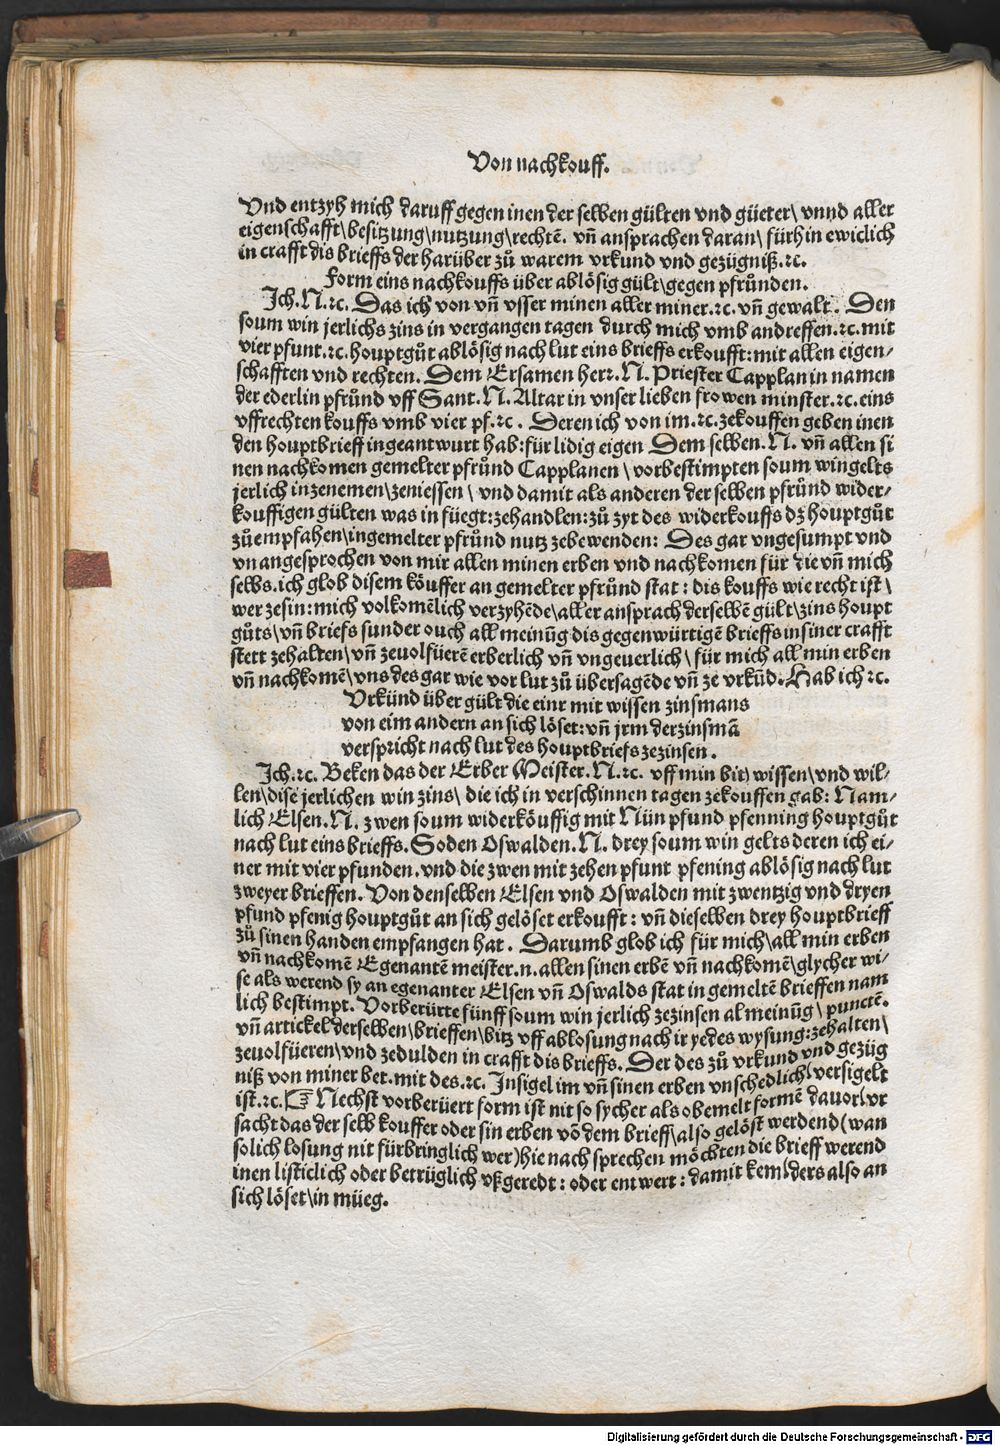 Von nachkouff.
Vnd entzyh mich daruff gegen inen der selben gülten vnd güeter\ vnnd aller
eigenschafft\besitzung\nutzung\rechtẽ. vñ ansprachen daran\ fürhin ewiclich
in crafft dis brieffs der harüber zů warem vrkund vnd gezügniß.ꝛc.
Form eins nachkouffs über ablösig gült\gegen pfrůnden.
Ich.N.ꝛc. Das ich von vñ vsser minen aller miner.ꝛc. vñ gewalt. Den
soum win jerlichs zins in vergangen tagen durch mich vmb andreffen.ꝛc.mit
vier pfunt.ꝛc.houptgůt ablösig nach lut eins brieffs erkoufft:mit allen eigen⸗
schafften vnd rechten. Dem Ersamen herr.N.Priester Capplan in namen
der ederlin pfrůnd vff Sant.N.Altar in vnser lieben frowen minster.ꝛc.eins
vffrechten kouffs vmb vier pf.ꝛc. Deren ich von im.ꝛc.zekouffen geben inen
den houptbrieff ingeantwurt hab:für lidig eigen Dem selben.N. vñ allen si
nen nachkomen gemelter pfrůnd Capplanen\ vorbestimpten soum wingelts
jerlich inzenemen\zeniessen\ vnd damit als anderen der selben pfrůnd wider⸗
kouffigen gülten was in füegt:zehandlen:zů zyt des widerkouffs dz houptgůt
zů empfahen\in gemelter pfrůnd nutz zebewenden: Des gar vngesumpt vnd
vn angesprochen von mir allen minen erben vnd nachkomen für die vñ mich
selbs.ich glob disem köuffer an gemelter pfrůnd stat: dis kouffs wie recht ist\
wer zesin:mich volkomẽlich verzyhẽde\aller ansprach derselbẽ gült\zins houpt
gůts\vñ briefs sunder ouch all meinũg dis gegenwürtigẽ brieffs in siner crafft
stett zehalten\vñ zeuolfüerẽ erberlich vñ vngeuerlich\ für mich all min erben
vñ nachkomẽ\vns des gar wie vor lut zů übersagẽde vñ ze vrkũd. Hab ich ꝛc.
Vrkünd über gült die einr mit wissen zinsmans
von eim andern an sich löset:vñ jrm der zinsmã
verspricht nach lut des houptbriefs zezinsen.
Ich.ꝛc. Beken das der Erber Meister.N.ꝛc. vff min bit\ wissen\vnd wil⸗
len\dise jerlichen win zins\ die ich in verschinnen tagen zekouffen gab: Nam⸗
lich Elsen.N. zwen soum widerköuffig mit Nün pfund pfenning houptgůt
nach lut eins brieffs. Soden Oswalden.N. drey soum win gelts deren ich ei⸗
ner mit vier pfunden.vnd die zwen mit zehen pfunt pfening ablösig nach lut
zweyer brieffen. Von denselben Elsen vnd Oswalden mit zwentzig vnd dryen
pfund pfenig houptgůt an sich gelöset erkoufft: vñ dieselben drey houptbrieff
zů sinen handen empfangen hat. Darumb glob ich für mich\all min erben
vñ nachkomẽ Egenantẽ meister.n.allen sinen erbẽ vñ nachkomẽ\glycher wi⸗
se als werend sy an egenanter Elsen vñ Oswalds stat in gemeltẽ brieffen nam
lich bestimpt. Vorberürte fünff soum win jerlich zezinsen al meinũg\ punctẽ.
vñ artickel derselben\brieffen\bitz vff ablosung nach ir yedes wysung:zehalten\
zeuolfüeren\vnd zedulden in crafft dis brieffs. Der des zů vrkund vnd gezüg
niß von miner bet.mit des.ꝛc. Insigel im vñ sinen erben vnschedlich\versigelt
ist.ꝛc.☞ Nechst vorberüert form ist nit so sycher als obemelt formẽ dauor\vr
sacht das der selb kouffer oder sin erben võ dem brieff\also gelöst werdend(wan
solich losung nit fürbringlich wer)hie nach sprechen möchten die brieff werend
inen listiclich oder betrüglich vßgeredt: oder entwert: damit kem\ders also an
sich löset\in müeg.
Digitalisierung gefördert durch die Deutsche Forschungsgemeinschaft - DFG